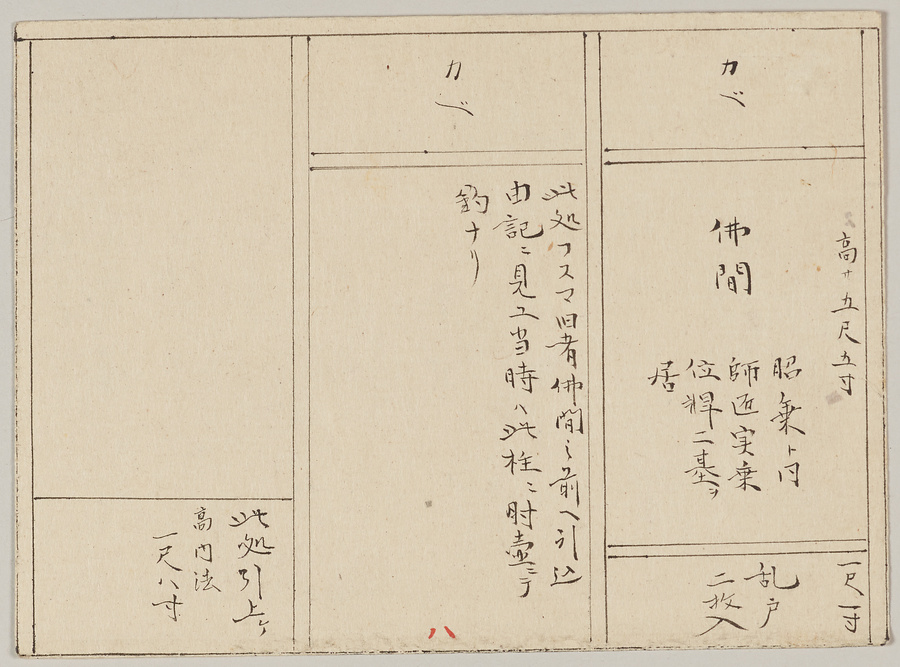 カベ
高サ五尺五寸
佛間
昭乗ト同
師匠実乗
位牌二基ヲ
居
一尺一寸
乱戸
二枚入
カベ
此処フスマ旧者佛間之前ヘ引込
由記ニ見ユ当時ハ此柱ニ肘壷ニテ
釣ナリ
八
此処引上ケ
高内法
一尺八寸